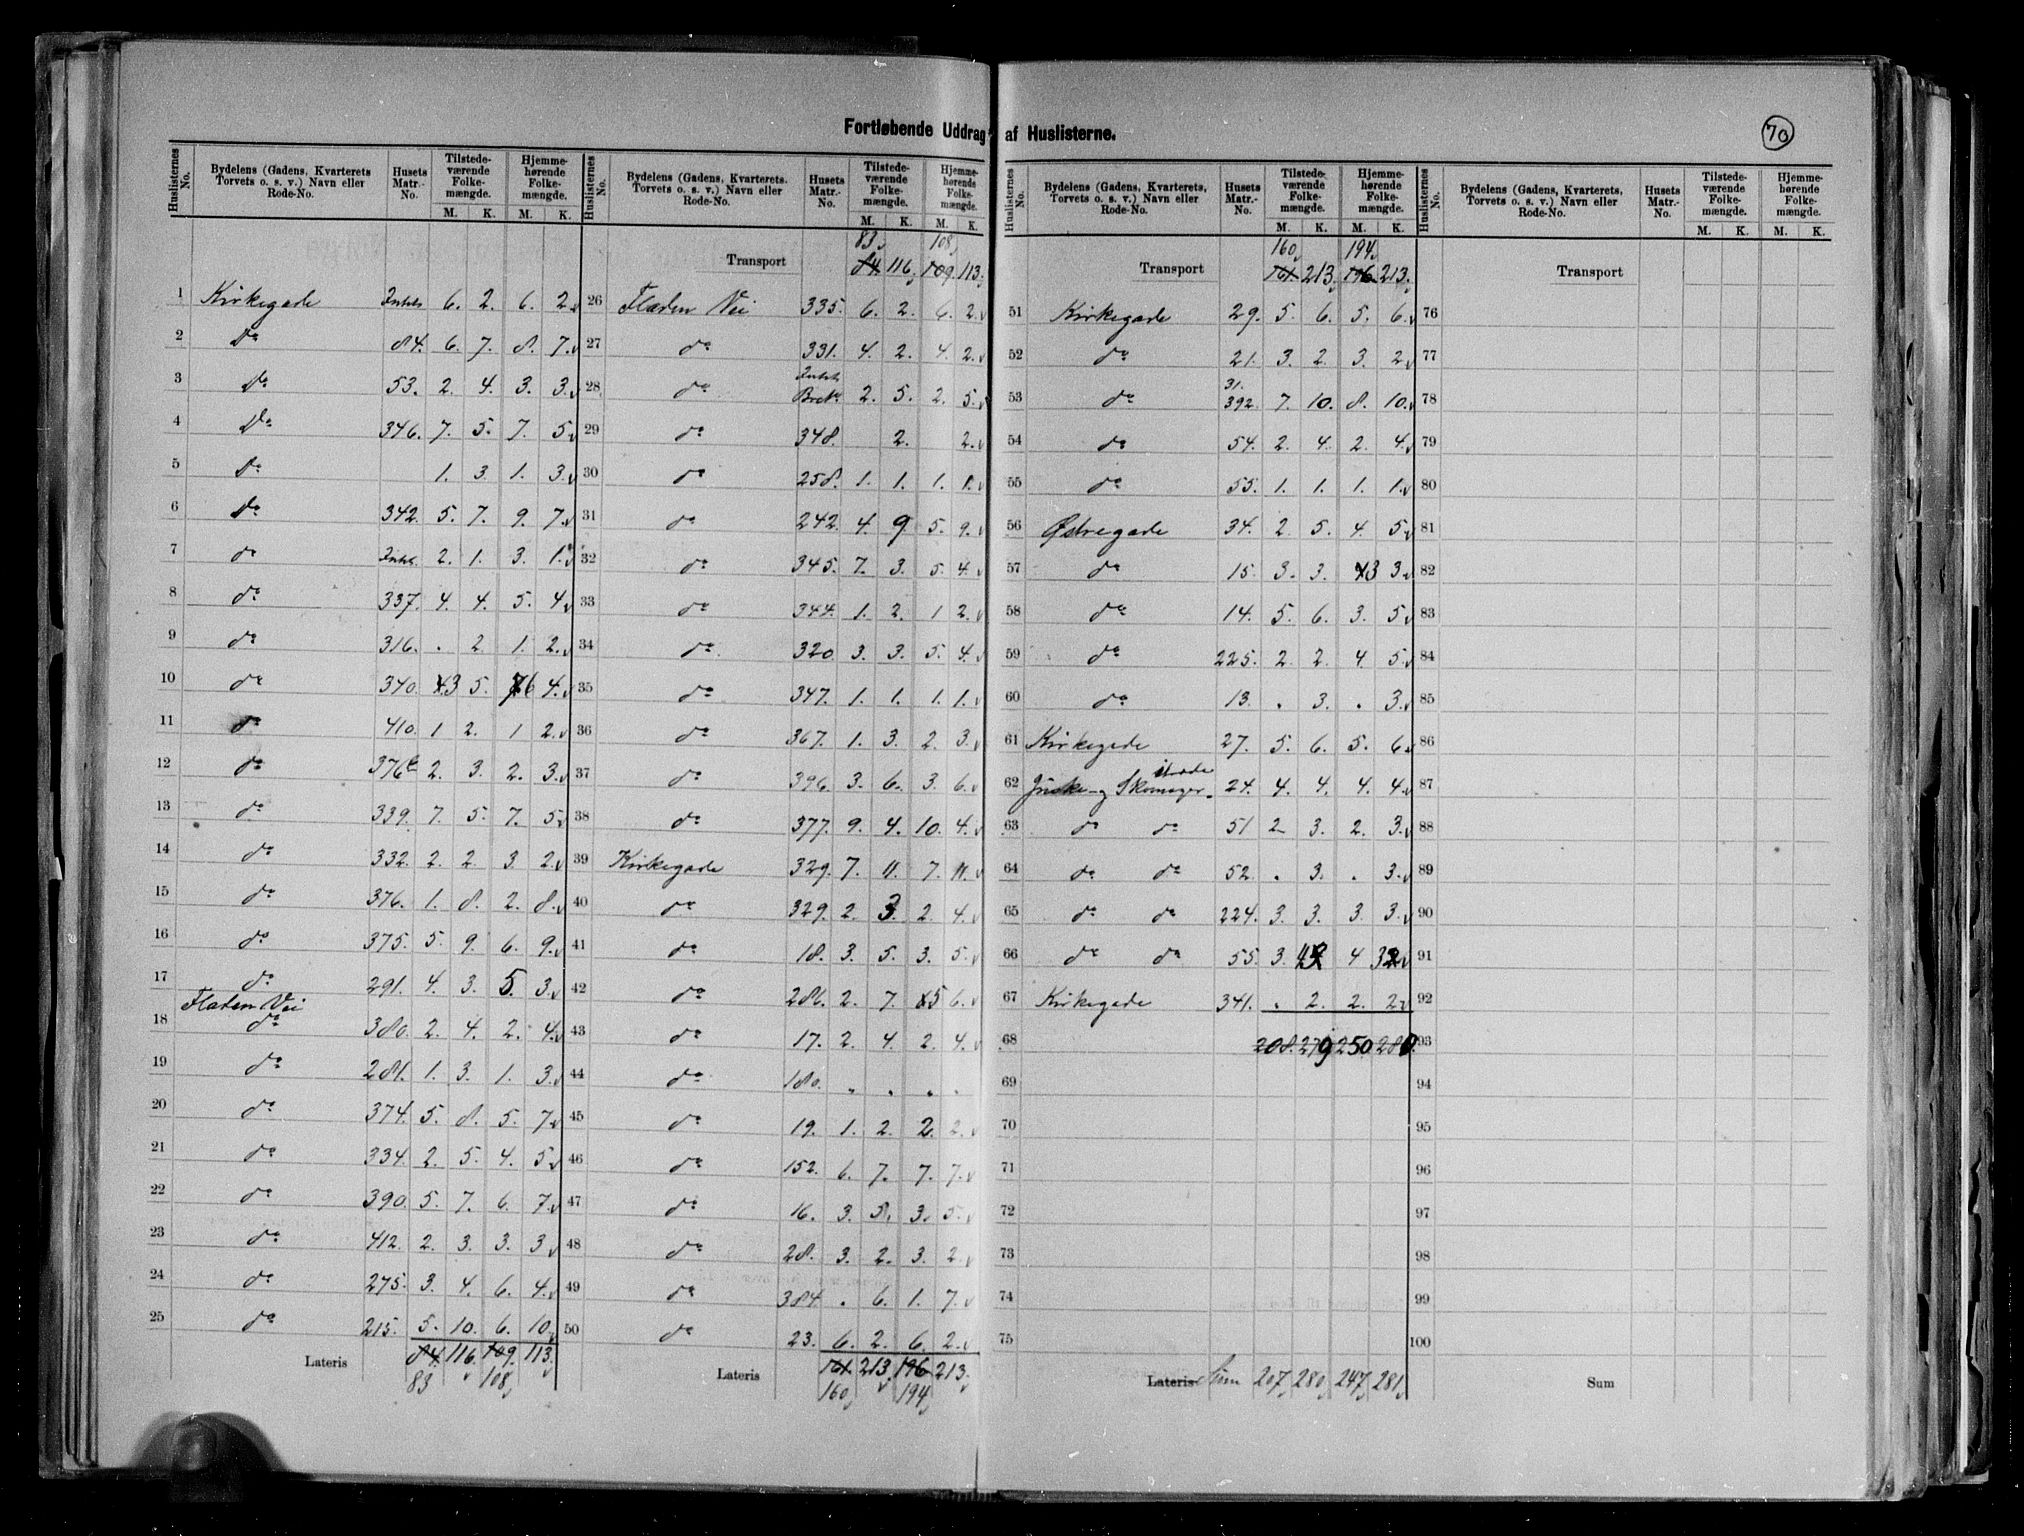 Fortløbende Uddrag af Huslisterne.
70
Huslisternes No. Bydelens (Gadens, Kvarterets Torvets o. s. v.) Navn eller Rode-No. Husets Matr.-No. Tilstedeværende Folkemængde. M. K. Hjemmehørende Folkemængde. M. K.
1 Kirkegade 6. 2. 6. 2.
2 Do 84. 6. 7. 8. 7.
3 Do 53. 2. 4. 3. 3.
4 Do 346. 7. 5. 7. 5.
5 Do 1. 3 1. 3.
6 Do 342. 5. 7. 9. 7.
7 do 2. 1. 3. 1.
8 do 337. 4. 4. 5. 4.
9 do 316. . 2 1. 2.
10 do 340. 3 5. 6 4.
11 do 410. 1 2. 1 2.
12 do 376c 2. 3. 2. 3.
13 do 339. 7. 5. 7. 5.
14 do 332. 2. 2. 3. 2.
15 do 376. 1. 8. 2. 8.
16 do 375. 5. 9. 6. 9.
17 do 291. 4. 3. 5. 3.
Fladen Vei
18 do 380. 2. 4. 2. 4.
19 do 281. 1. 3. 1. 3.
20 do 374. 5. 8. 5. 7.
21 do 334. 2. 5. 4. 5.
22 do 390. 5. 7. 6. 7.
23 do 412. 2. 3. 3. 3.
24 do 275. 3. 4. 6. 4.
25 do 215. 5. 10. 6. 10.
Lateris 84. 116. 109. 113.
83 108
Huslisternes No. Bydelens (Gadens, Kvarterets, Torvets o. s. v.) Navn eller Rode-No. Husets Matr.-No. Tilstedeværende Folkemængde. M. K. Hjemmehørende Folkemængde. M. K.
83 108
Transport 84. 116 109. 113.
26 Fladen Vei 335. 6. 2. 6. 2.
27 do 331. 4. 2. 4. 2.
28 do 2. 5. 2. 5.
29 do 348. 2. 2.
30 do 258. 1. 1. 1. 1.
31 do 242. 4. 9 5. 9.
32 do 345. 7. 3. 5. 4.
33 do 344. 1. 2. 1 2.
34 do 320. 3. 3. 5. 4.
35 do 347. 1. 1. 1. 1.
36 do 367. 1. 3. 2. 3.
37 do 396. 3. 6. 3. 6.
38 do 377. 9. 4. 10. 4.
39 Kirkegade 329. 7. 11. 7. 11.
40 do 329. 2. 3. 2. 4.
41 do 18. 3. 5. 3. 5.
42 do 286. 2. 7. 5 6.
43 do 17. 2. 4. 2. 4.
44 do 180. . . . .
45 do 19. 1. 2. 2. 2.
46 do 152. 6. 7. 7. 7.
47 do 16. 3. 5. 3. 5.
48 do 28. 3. 2. 3. 2.
49 do 384 . 6. 1. 7.
50 do 23. 6. 2. 6. 2.
Lateris 161. 213. 196 213.
160 194
Huslisternes No. Bydelens (Gadens, Kvarterets, Torvets o. s. v.) Navn eller Rode-No. Husets Matr.-No. Tilstedeværende Folkemængde. M. K. Hjemmehørende Folkemængde. M. K.
160 194
Transport 161. 213. 196. 213.
51 Kirkegade 29. 5. 6. 5. 6.
52 do 21. 3. 2. 3. 2.
31.
53 do 392. 7. 10. 8. 10.
54 do 54. 2. 4. 2. 4.
55 do 55. 1. 1. 1. 1.
56 Østregade 34. 2. 5. 4. 5.
57 do 15. 3. 3. 3 3.
58 do 14. 5. 6. 3. 5.
59 do 225. 2. 2. 4. 5.
60 do 13. . 3. . 3.
61 Kirkegade 27. 5. 6. 5. 6.
62 Skomager- 24. 4. 4. 4. 4.
63 do do 51 2 3. 2. 3.
64 do do 52. . 3. . 3.
65 do do 224. 3. 3. 3. 3.
66 do do 55. 3. 4
67 Kirkegade 341. . 2. 2. 2.
68 208. 279 250 280.
69
70
71
72
73
74
75
Lateris Sum 207 280 247 281
Huslisternes No. Bydelens (Gadens, Kvarterets, Torvets o. s. v.) Navn eller Rode-No. Husets Matr.-No. Tilstedeværende Folkemængde. M. K. Hjemmehørende Folkemængde. M. K.
Transport
76
77
78
79
80
81
82
83
84
85
86
87
88
89
90
91
92
93
94
95
96
97
98
99
100
Sum